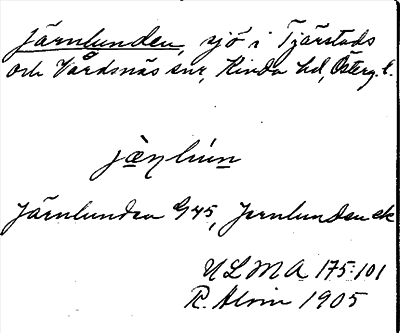 Järnlunden, sjö i Tjärstads
och Vårdsnäs snr, Kinda hd, Österg. l.
Järnlunden G 45, Jernlunden ek
ULMA 175:101
R. Alvin 1905